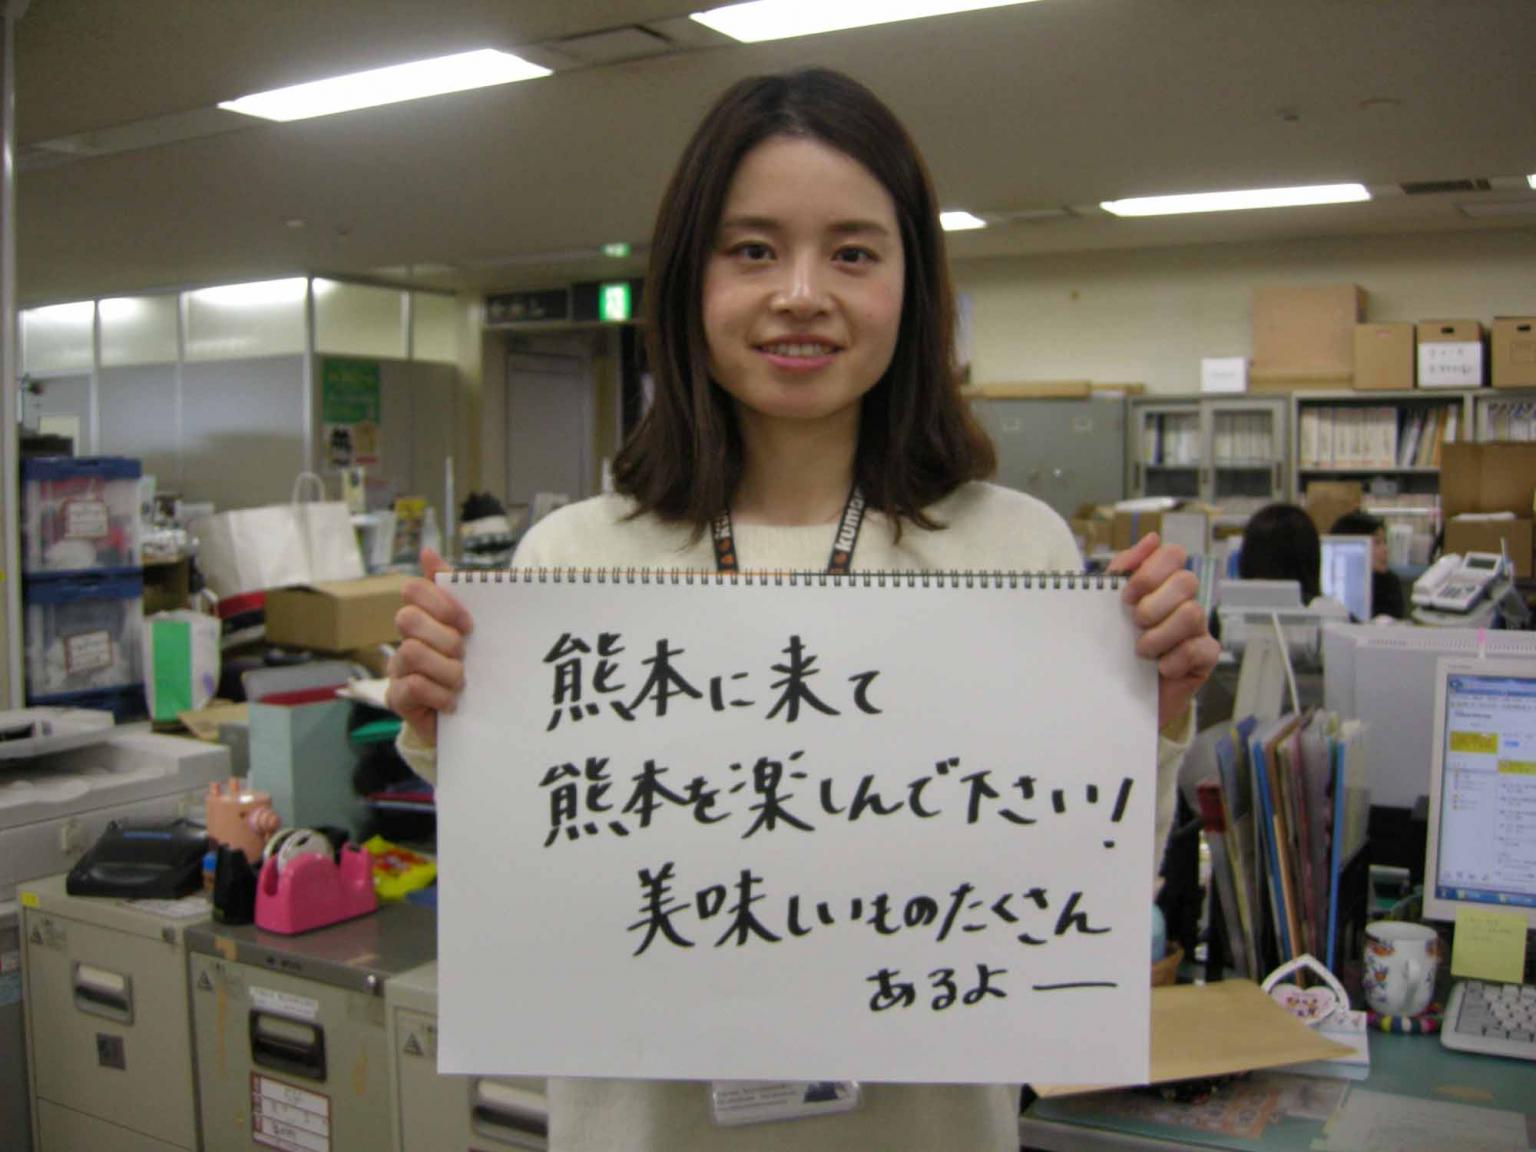 熊本に来て
熊本を楽しんで下さい!
美味しいものたくさん
あるよー
kumo